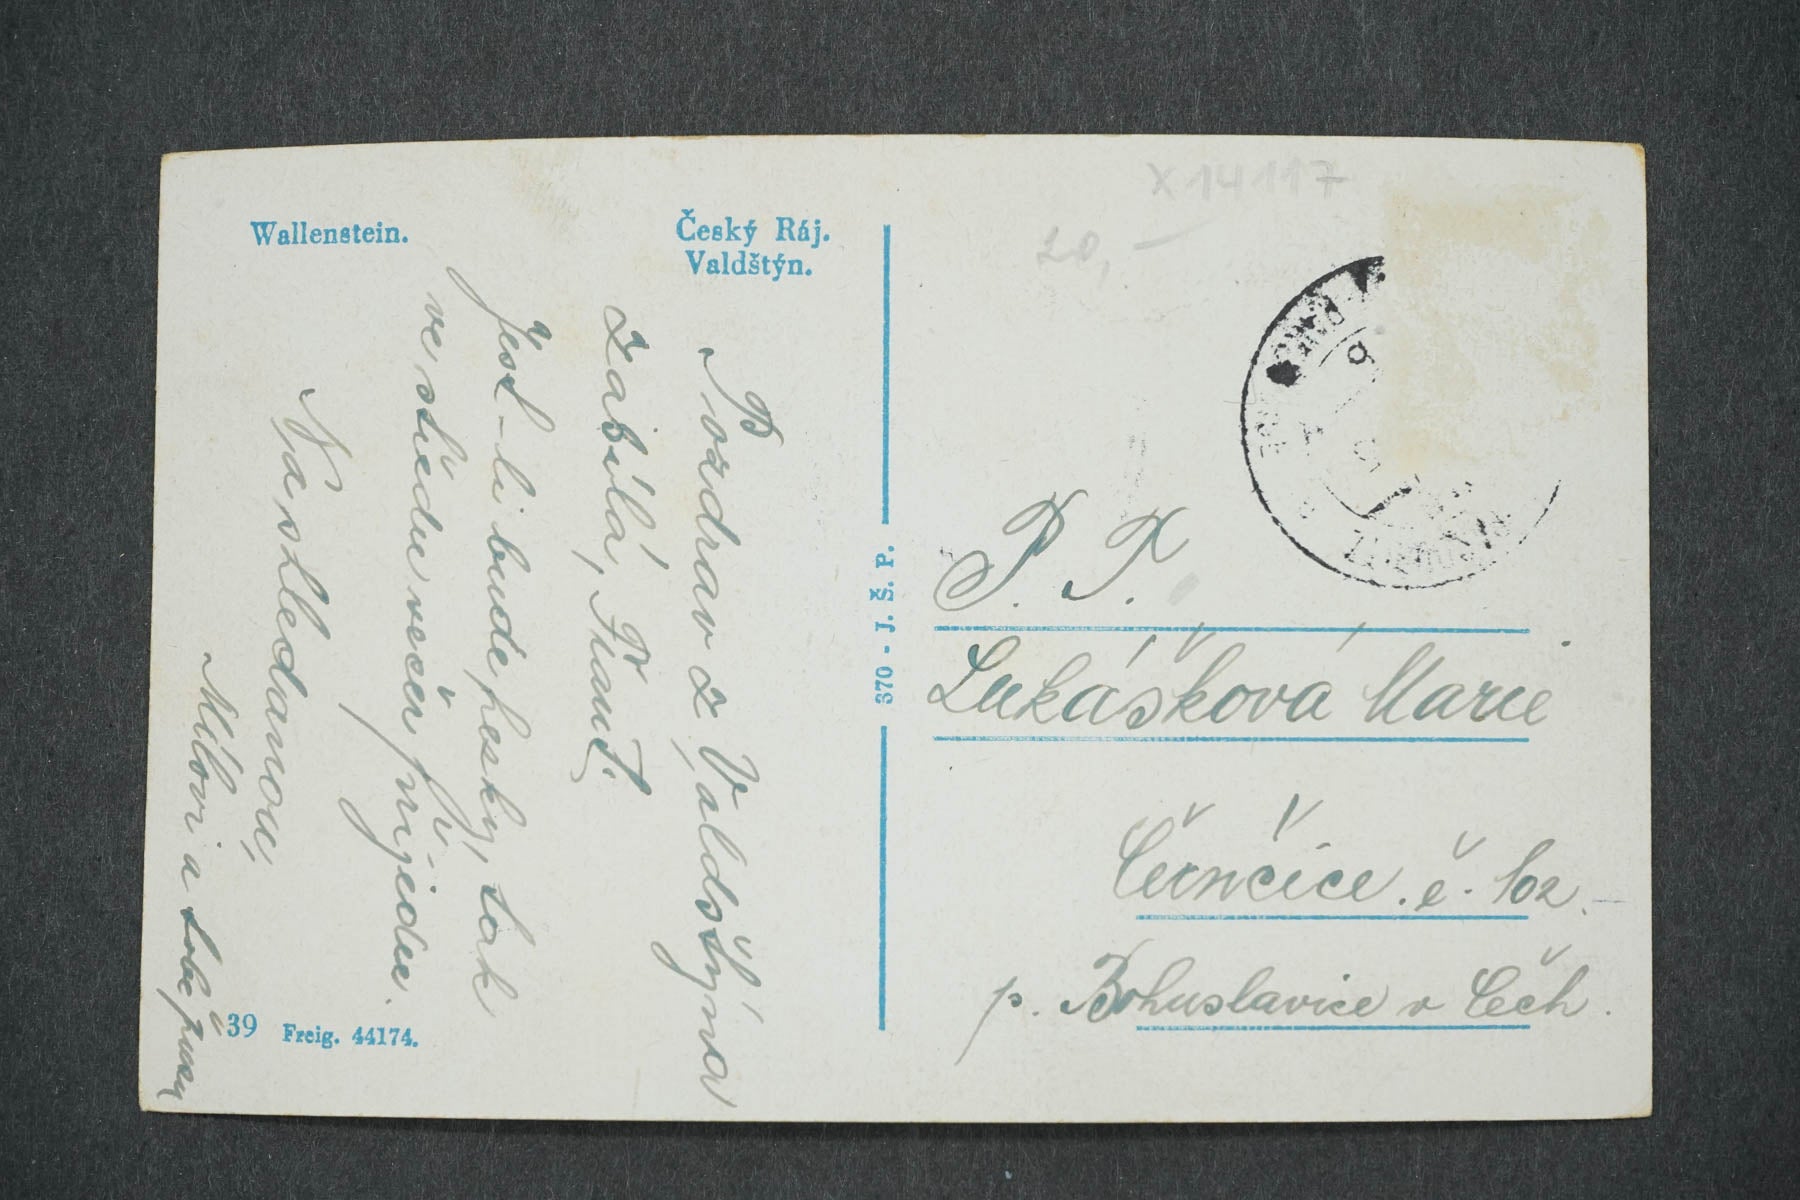 Wallenstein.
Český Ráj.
Valdštýn.
Pozdrav z Valdštýna
Frant.
Jest-li bude hesky, tak
ve středu večer přijedu.
Nasžledanou,
Mílovi a tobě pusu
39 Freig. 44174.
370 - J. Š. P.
X 14117
20,—
P. T.
Lukášková Marie
Černčice. č. 102.
p. Bohuslavice v Čech.